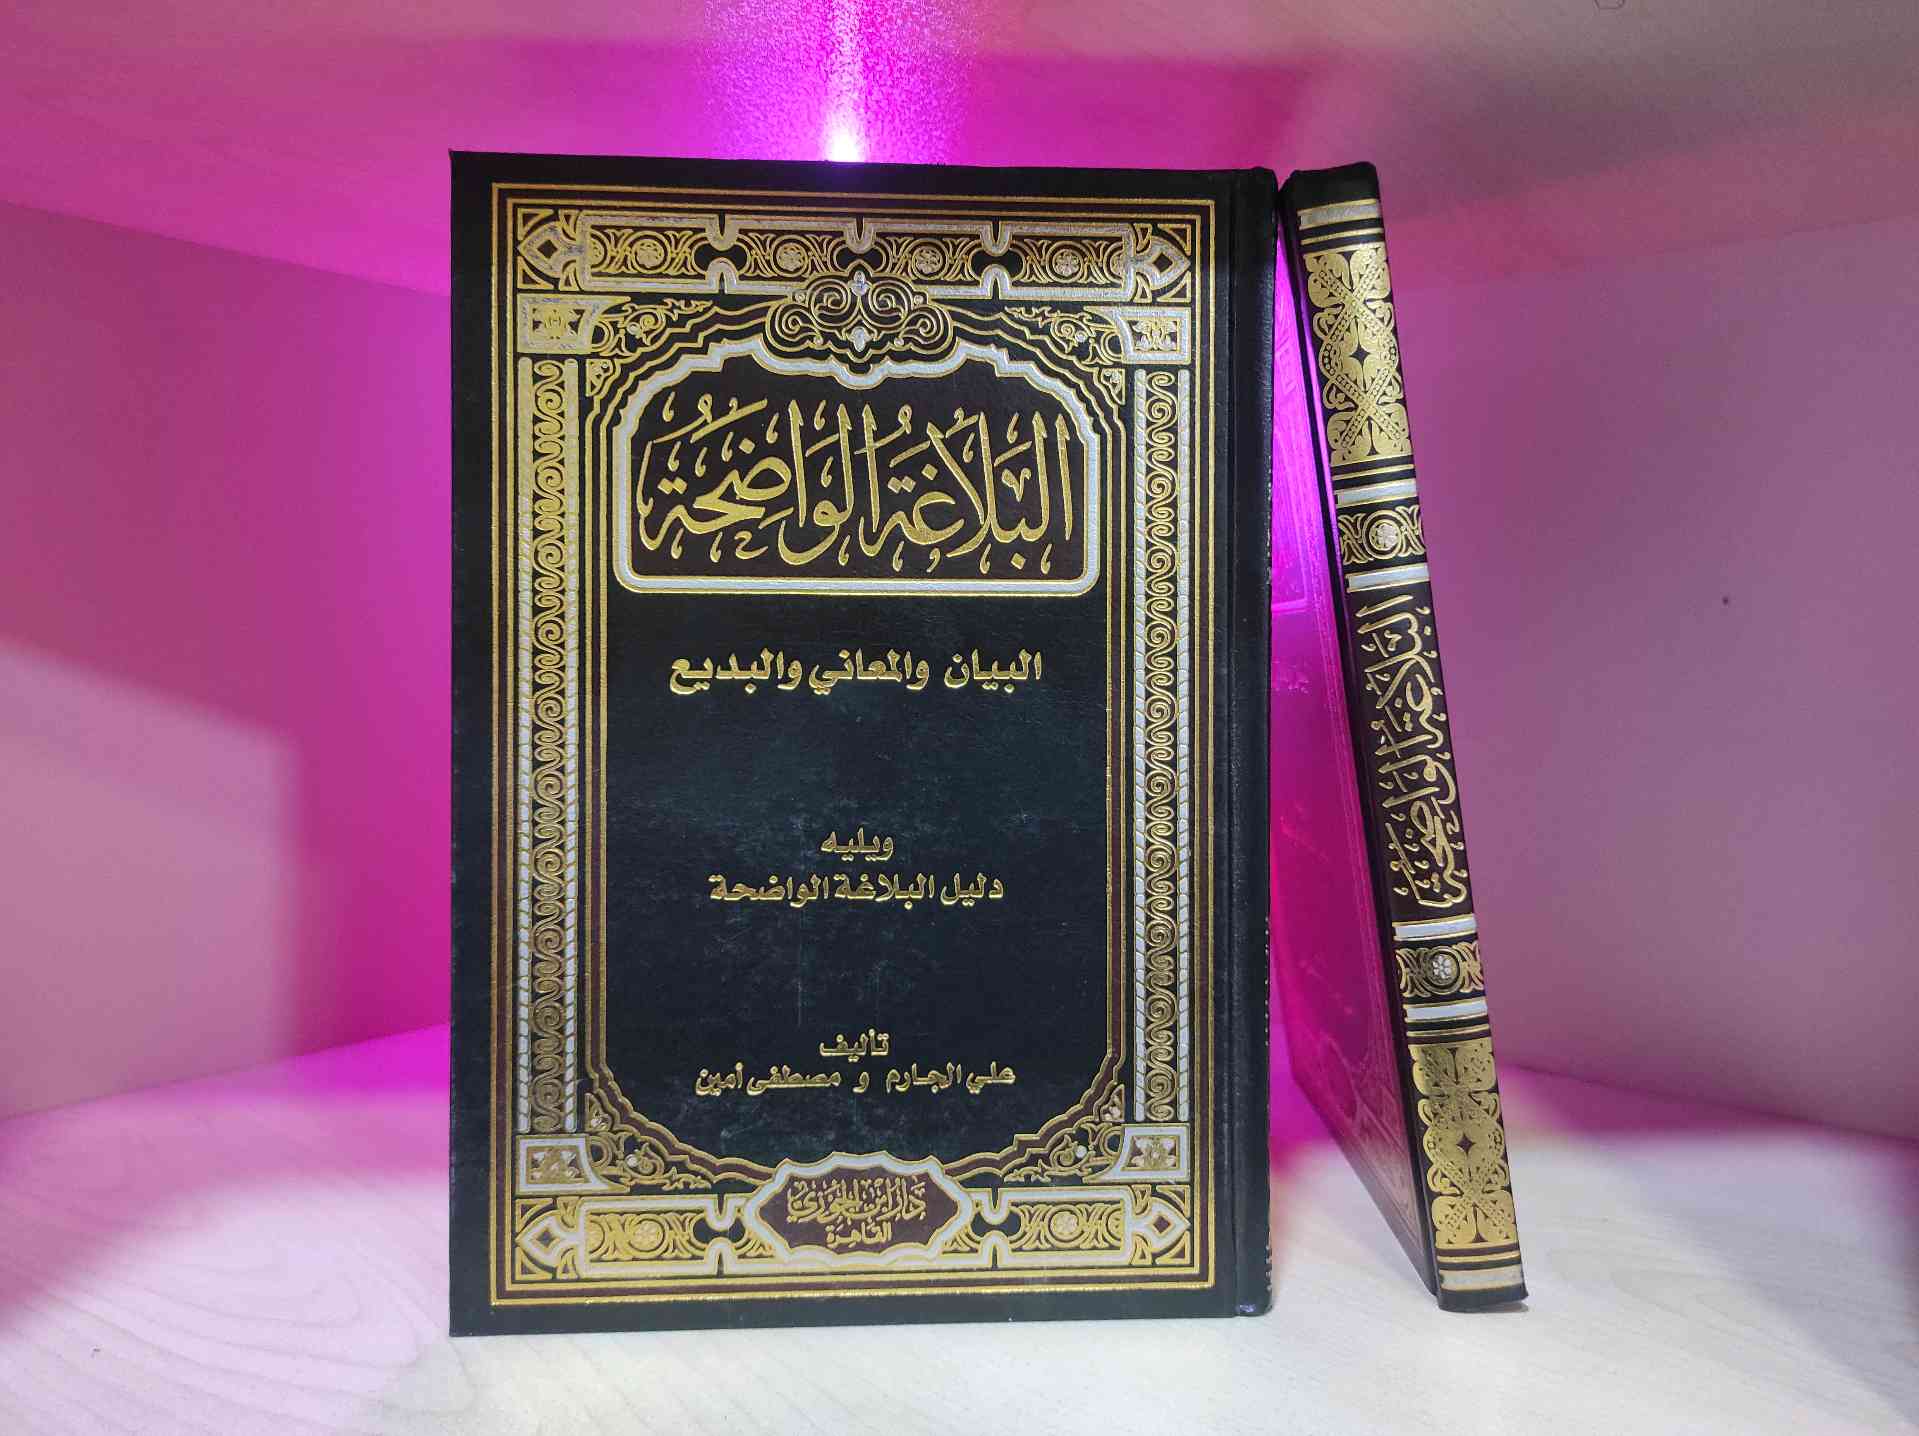 البَلَاغَةُ الوَاضِحَةُ
البيان والمعاني والبديع
ويليه
دليل البلاغة الواضحة
تأليف
علي الجارم و مصطفى أمين
دار ابن الجوزي
القاهرة
البَلَاغَةُ الوَاضِحَةُ